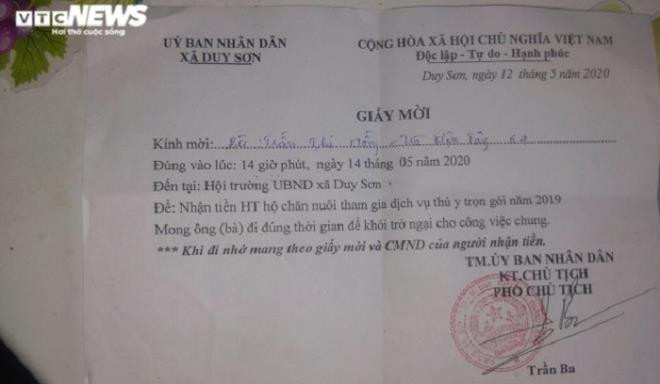 VTC NEWS
Hơi thở cuộc sống
UỶ BAN NHÂN DÂN
XÃ DUY SƠN
CỘNG HÒA XÃ HỘI CHỦ NGHĨA VIỆT NAM
Độc lập - Tự do - Hạnh phúc
Duy Sơn, ngày 12 tháng 5 năm 2020
GIẤY MỜI
Kính mời: Trần Thị
Đúng vào lúc: 14 giờ phút, ngày 14 tháng 05 năm 2020
Đến tại: Hội trường UBND xã Duy Sơn
Để: Nhận tiền HT hộ chăn nuôi tham gia dịch vụ thú y trọn gói năm 2019
Mong ông (bà) đi đúng thời gian để khỏi trở ngại cho công việc chung.
*** Khi đi nhớ mang theo giấy mời và CMND của người nhận tiền.
TM.ỦY BAN NHÂN DÂN
KT.CHỦ TỊCH
PHÓ CHỦ TỊCH
Trần Ba